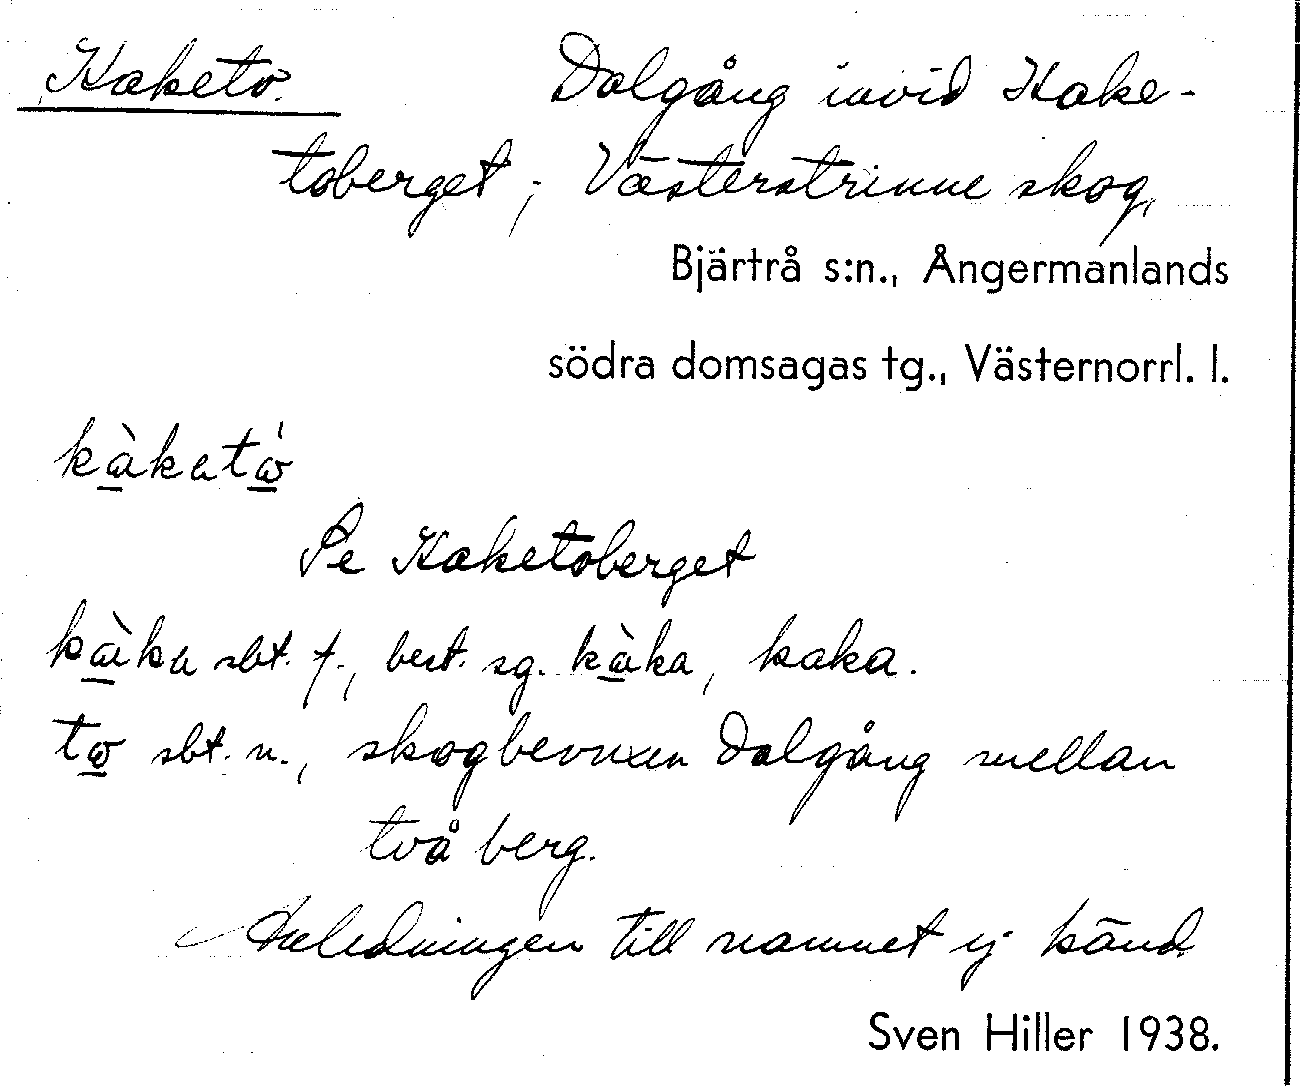 Kaketo. Dalgång invid Kake-
toberget, Västerstrinne skog,
Bjärtrå s:n., Ångermanlands
södra domsagas tg., Västernorrl. l.
kàkató
Se Kaketoberget
kàka sbt. f., best. sg. kàka, kaka.
to sbt. n., skogbevuxen dalgång mellan
två berg.
Anledningen till namnet ej känd
Sven Hiller 1938.